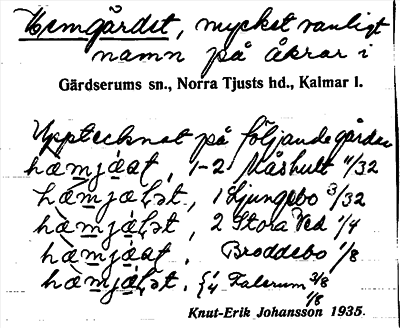 Hemgärdet, mycket vanligt
namn på åkrar i
Gärdserums sn., Norra Tjusts hd., Kalmar l.
Upptecknat på följande gårdar
1-2 Måshult 11/32
1 Ljungebo 3/32
2 Stora Ved 1/4
Broddebo 1/8
1/4 Falerum 3/8
1/8
Knut-Erik Johansson 1935.